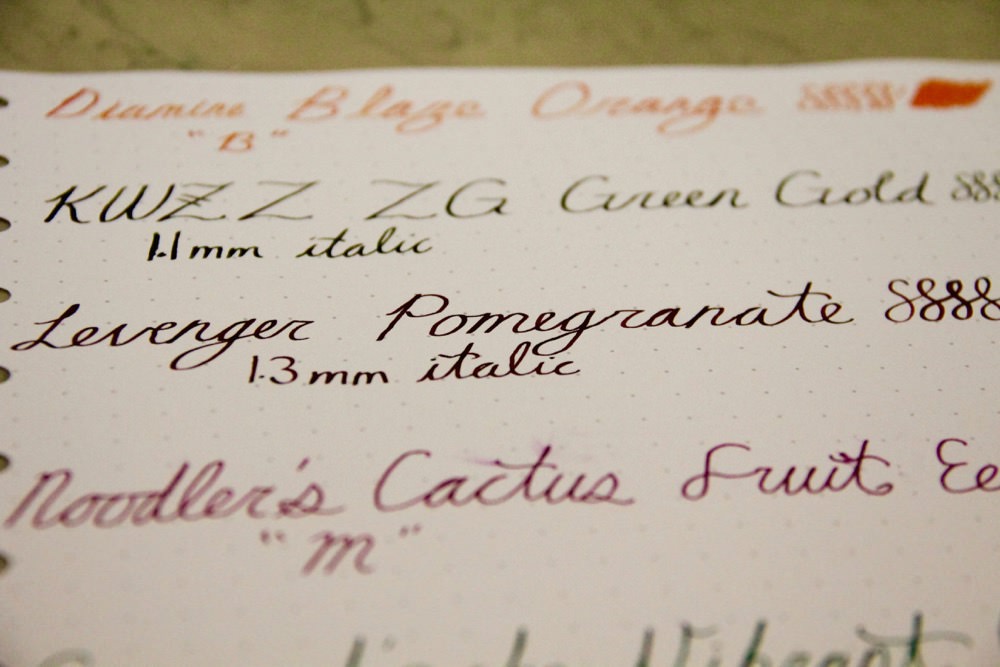 Diamine Blaze Orange
"B"
KWZZ ZG Green Gold
1.1mm italic
Levenger Pomegranate
1.3mm italic
Noodler's Cactus Fruit Ee
"M"
Vibrant